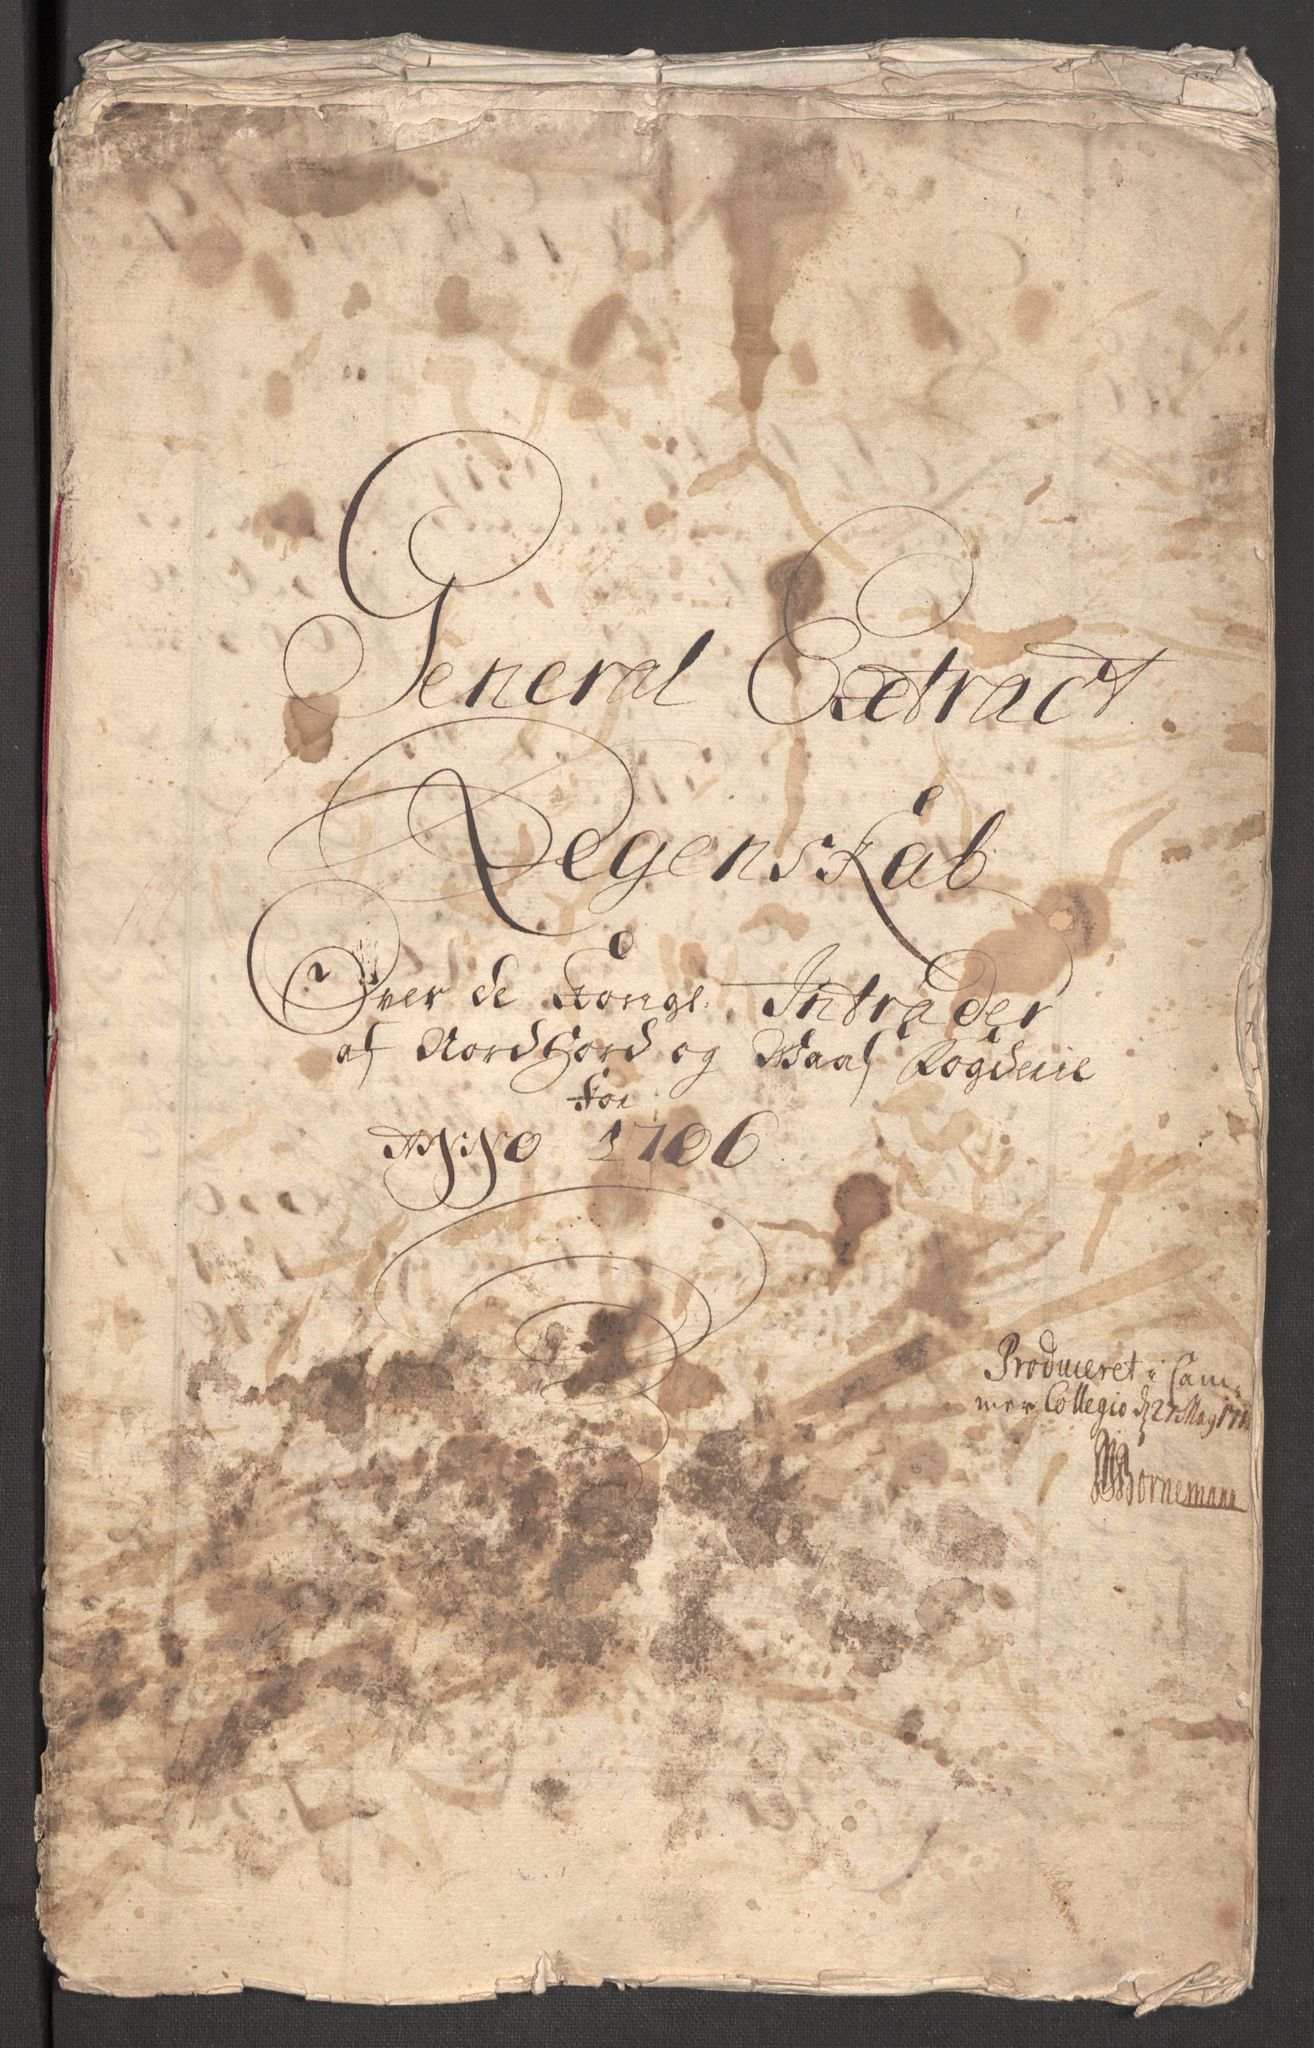 General Extract
Regenskab
Over de Kongl. Intrader
af Nordhord og Waas Fogderie
for
Anno 1706
Produceret i Cam-
mer Collegio d 27 May
WBornemann